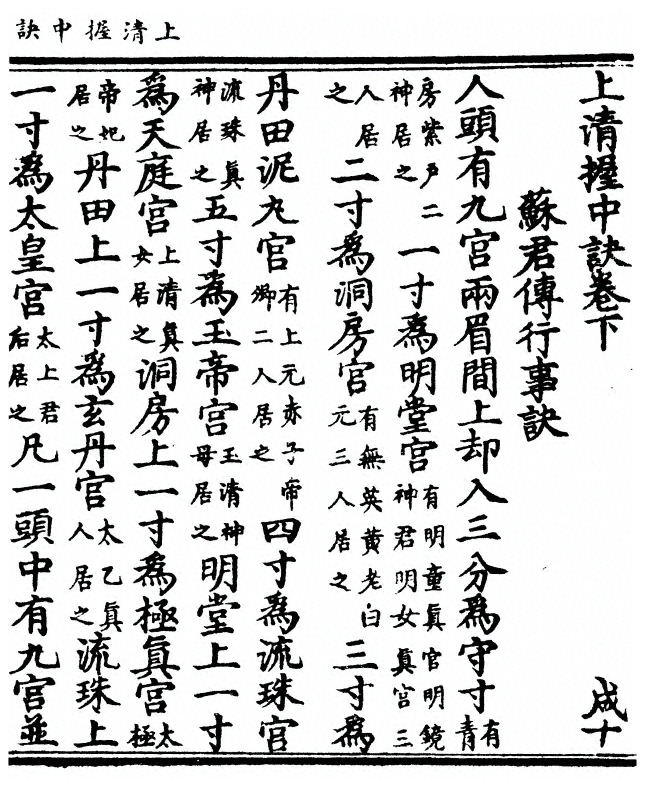 上清握中訣
上清握中訣卷下 成十
蘇君傳行事訣
人頭有九宮兩眉間上却入三分為守寸有青
房紫戶二神居之一寸為明堂宮有明童真官明鏡神君明女真宮三
人居之二寸為洞房宮有無英黃老白元三人居之三寸為
丹田泥丸宮有上元赤子帝卿二人居之四寸為流珠宮
流珠真神居之五寸為玉帝宮玉清神母居之明堂上一寸
為天庭宮上清真女居之洞房上一寸為極真宮太極
帝妃居之丹田上一寸為玄丹宮太乙真人居之流珠上
一寸為太皇宮太上君后居之凡一頭中有九宮並